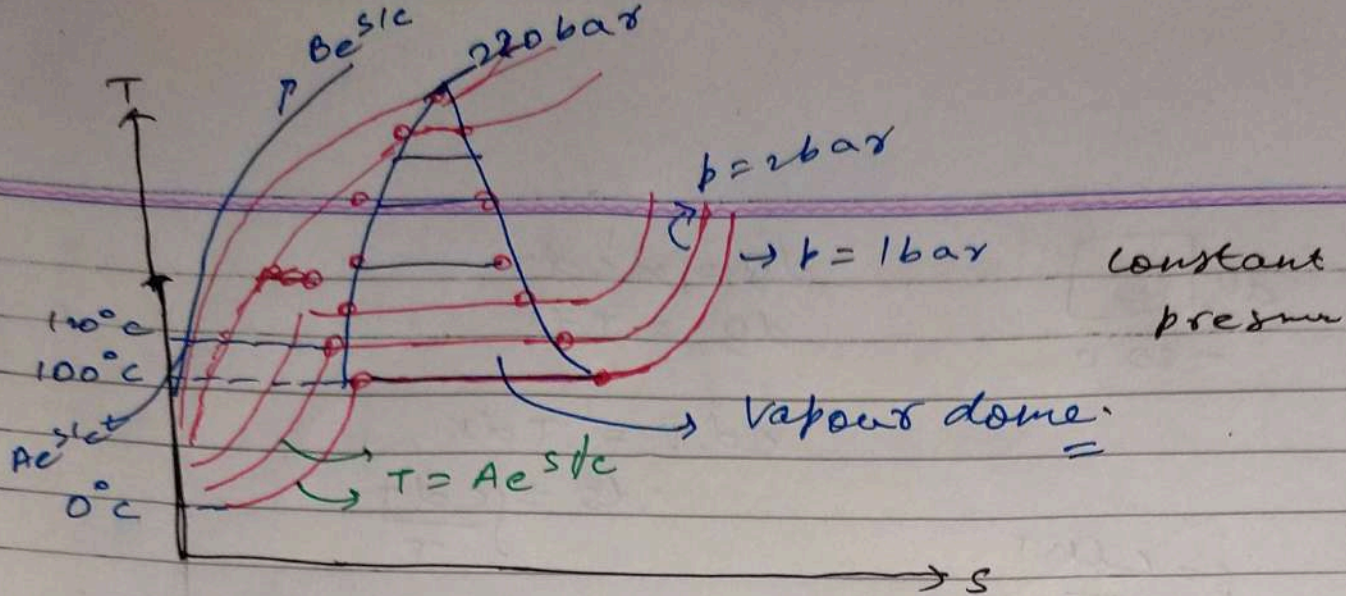 Be^s/c
220 bar
T
p = 2bar
→ p = 1bar
constant
pressure
120°c
100°c
Vapour dome.
Ae^s/c
T = Ae^s/c
0°c
S